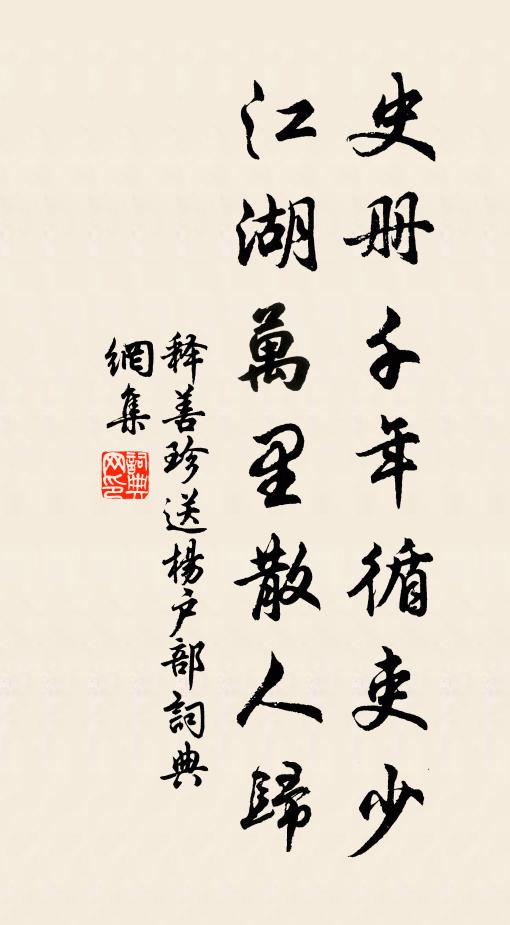 史册千年循吏少
江湖萬里散人歸
释善珍送楊户部詞典
網集
詞典網印